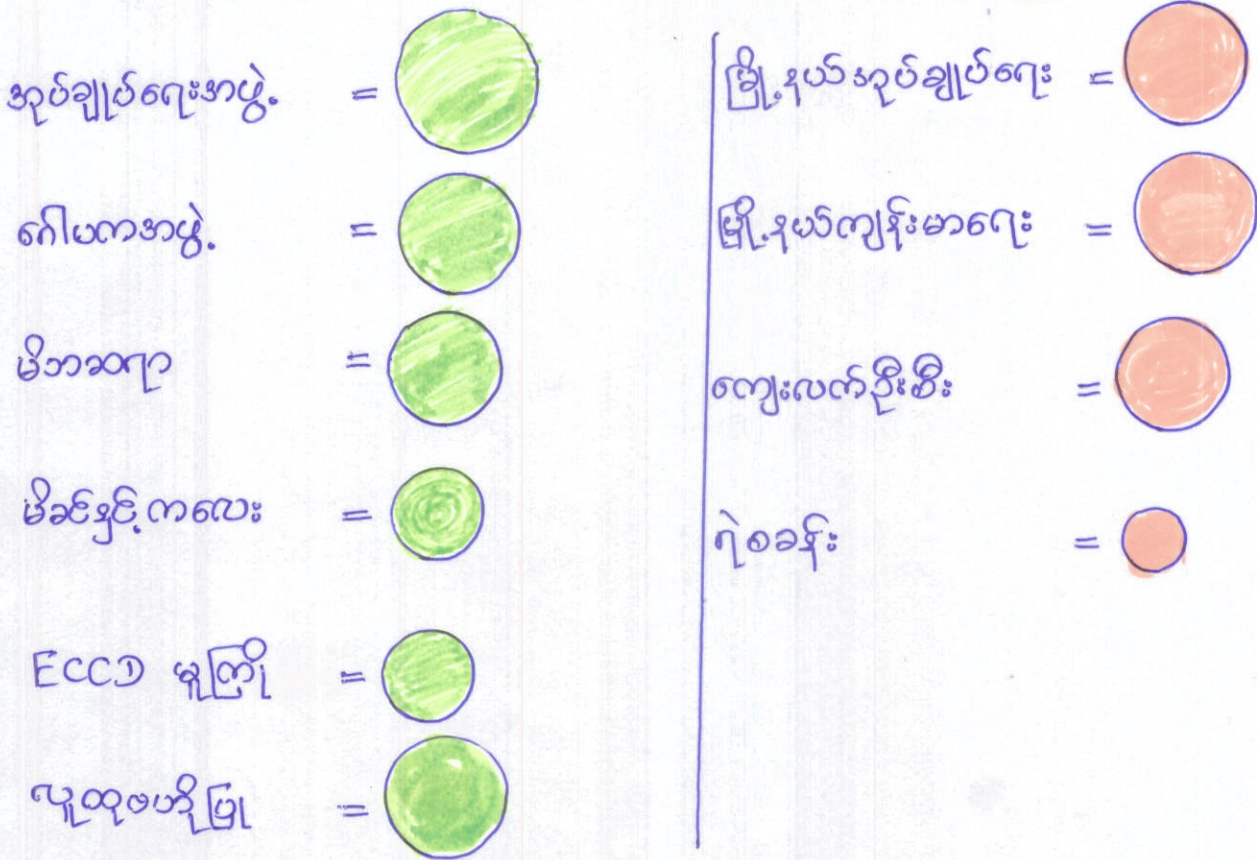 အုပ်ချုပ်ရေးအဖွဲ့ =
ဂေါပကအဖွဲ့ =
မိဘဆရာ =
မိခင်နှင့်ကလေး =
ECCD မူကြို =
လူထုဗဟိုပြု =
မြို့နယ်အုပ်ချုပ်ရေး =
မြို့နယ်ကျန်းမာရေး =
ကျေးလက်ဦးစီး =
ရဲစခန်း =